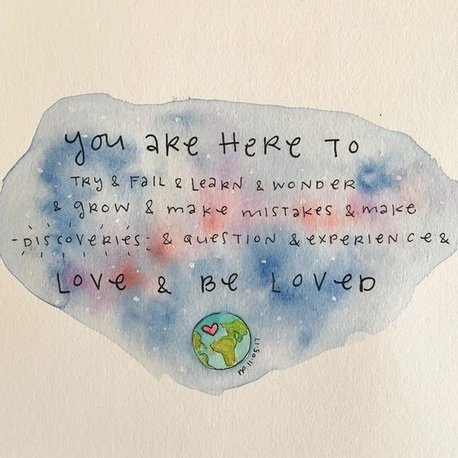 you are Here to
try & Fail & Learn & wonder
& grow & make mistakes & make
-Discoveries- & question & experience &
Love & Be Loved
11.05.17